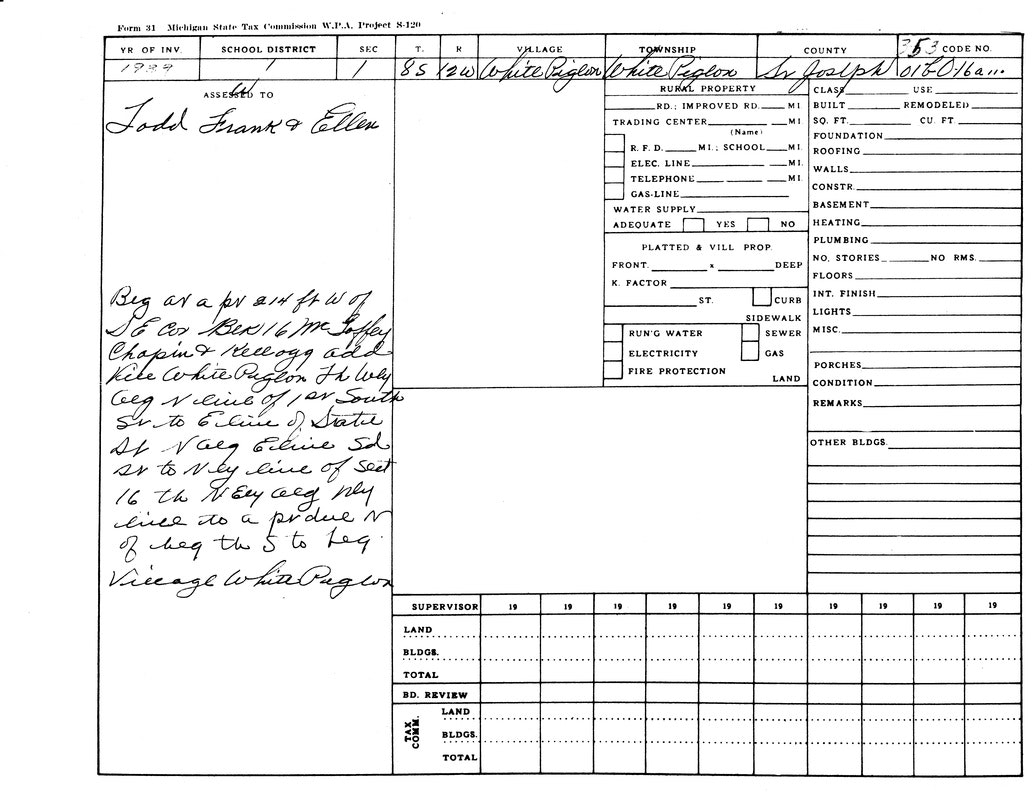 Form 31 Michigan State Tax Commission W.P.A. Project S-120
YR OF INV. SCHOOL DISTRICT SEC T. R VILLAGE TOWNSHIP COUNTY 353 CODE NO.
1939 1 1 8S 12W White Pigeon White Pigeon St Joseph
ASSESSED TO
Todd Frank & Ellen
Beg at a pt 214 ft W of
S E cor Blk 16 Mc Gaffey
Chapin & Kellogg add
Vill White Pigeon Th Wly
alg N line of 1st South
St to E line of State
St N alg E line Sd
St to Nly line of Sect
16 th N Ely alg Nly
line to a pt due N
of beg th S to beg.
Village White Pigeon
RURAL PROPERTY
RD.; IMPROVED RD. MI
TRADING CENTER MI.
(Name)
R. F. D. MI.; SCHOOL MI.
ELEC. LINE MI.
TELEPHONE MI.
GAS-LINE
WATER SUPPLY
ADEQUATE YES NO
PLATTED & VILL PROP.
FRONT. x DEEP
K. FACTOR
ST. CURB
SIDEWALK
RUN'G WATER SEWER
ELECTRICITY GAS
FIRE PROTECTION
LAND
CLASS USE
BUILT REMODELED
SQ. FT. CU. FT
FOUNDATION
ROOFING
WALLS
CONSTR.
BASEMENT
HEATING
PLUMBING
NO. STORIES NO RMS.
FLOORS
INT. FINISH
LIGHTS
MISC.
PORCHES
CONDITION
REMARKS
OTHER BLDGS.
SUPERVISOR 19 19 19 19 19 19 19 19 19
LAND
BLDGS.
TOTAL
BD. REVIEW
TAX COMM.
LAND
BLDGS.
TOTAL